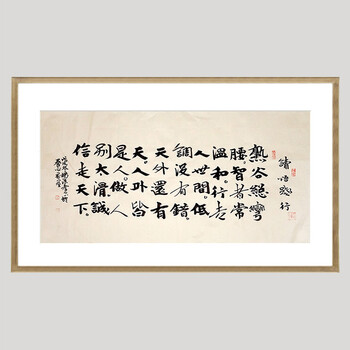 請悟行
熟谷總彎
腰。智者常
温和。行走
人世間。低
調没有錯。
天外還有
天。人外皆
是人。做人
别太滑。誠
信走天下。